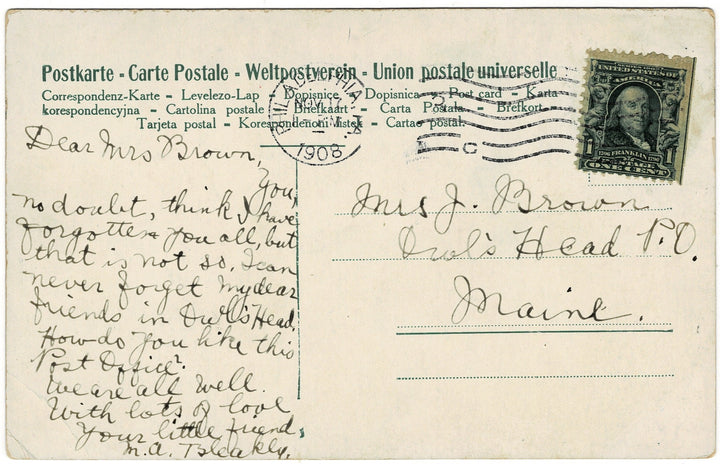 Postkarte - Carte Postale - Weltpostverein - Union postale universelle
Correspondenz-Karte - Levelezo-Lap - Dopisnice - Dopisnica - Post card - Karta
korespondencyjna - Cartolina postale - Brefkaart - Carta Postala - Brefkort.
Tarjeta postal - Korespondencni listek - Cartao postal.
PHILADELPHIA, PA.
NOV
1908
C
UNITED STATES OF
AMERICA
FRANKLIN
1 ONE CENT 1
Dear Mrs Brown,
You,
no doubt, think I have
forgotten you all, but
that is not so. I can
never forget my dear
friends in Owl's Head.
How do you like this
Post Office?
We are all well.
With lots of love
Your little friend,
M. A. Bleakly.
Mrs J. Brown
Owl's Head P.O.
Maine.